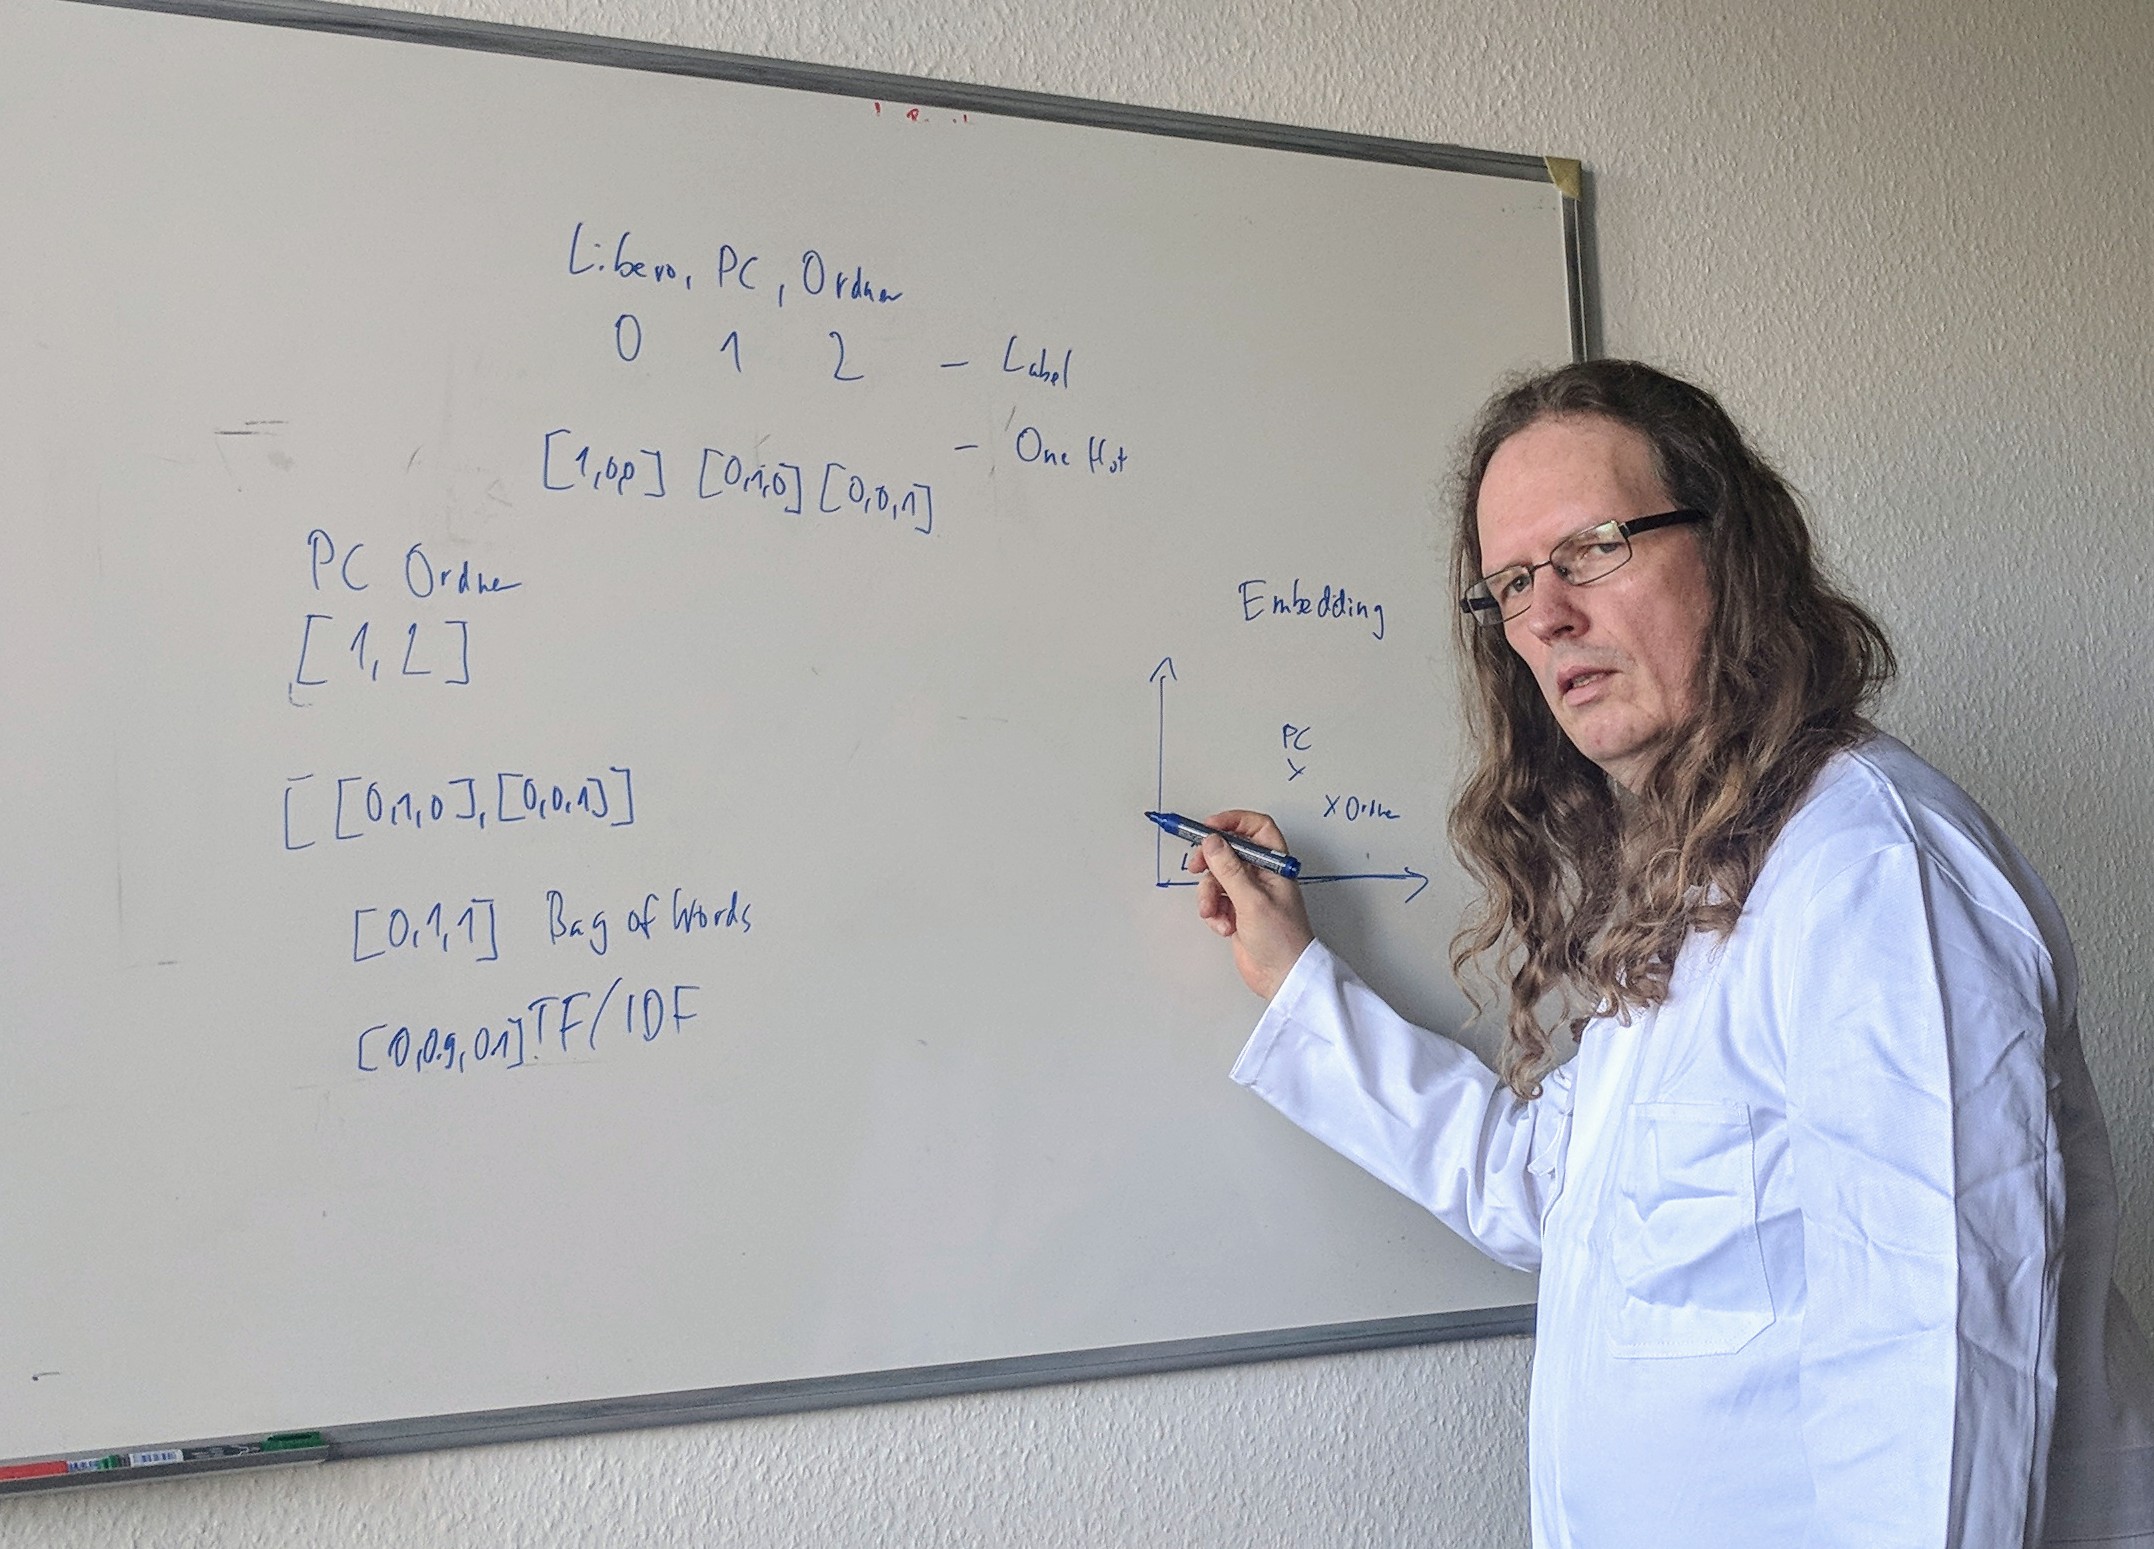 Libero, PC, Ordner
0 1 2 – Label
[1,0,0] [0,1,0] [0,0,1] – One Hot
PC Ordner
[1, 2]
[[0,1,0],[0,0,1]]
[0,1,1] Bag of Words
[0,0.9,0.1] TF/IDF
Embedding
PC
x
x Ordner
L